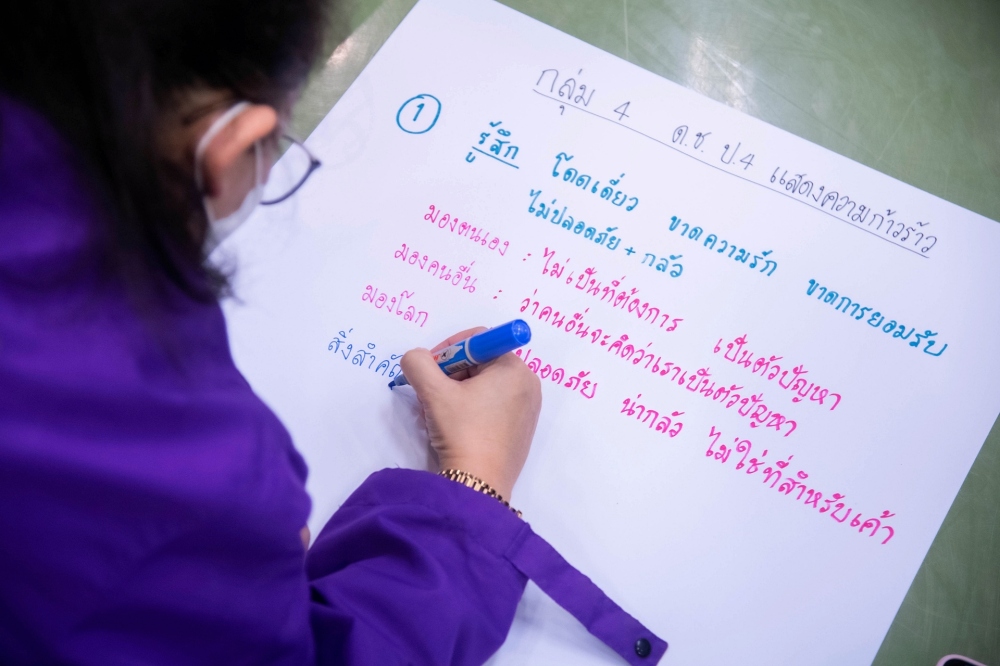 กลุ่ม 4 ด.ช. ป.4 แสดงความก้าวร้าว
1
รู้สึก โดดเดี่ยว ขาดความรัก ขาดการยอมรับ
ไม่ปลอดภัย + กลัว
มองตนเอง : ไม่เป็นที่ต้องการ เป็นตัวปัญหา
มองคนอื่น : ว่าคนอื่นจะคิดว่าเราเป็นตัวปัญหา
มองโลก ปลอดภัย น่ากลัว ไม่ใช่ที่สำหรับเค้า